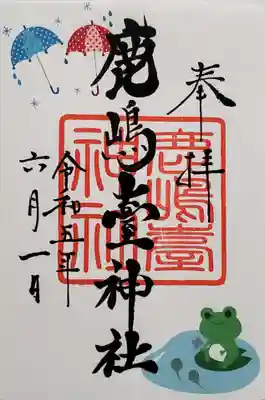 奉拝
鹿嶋臺神社
鹿嶋臺
神社
令和五年
六月一日